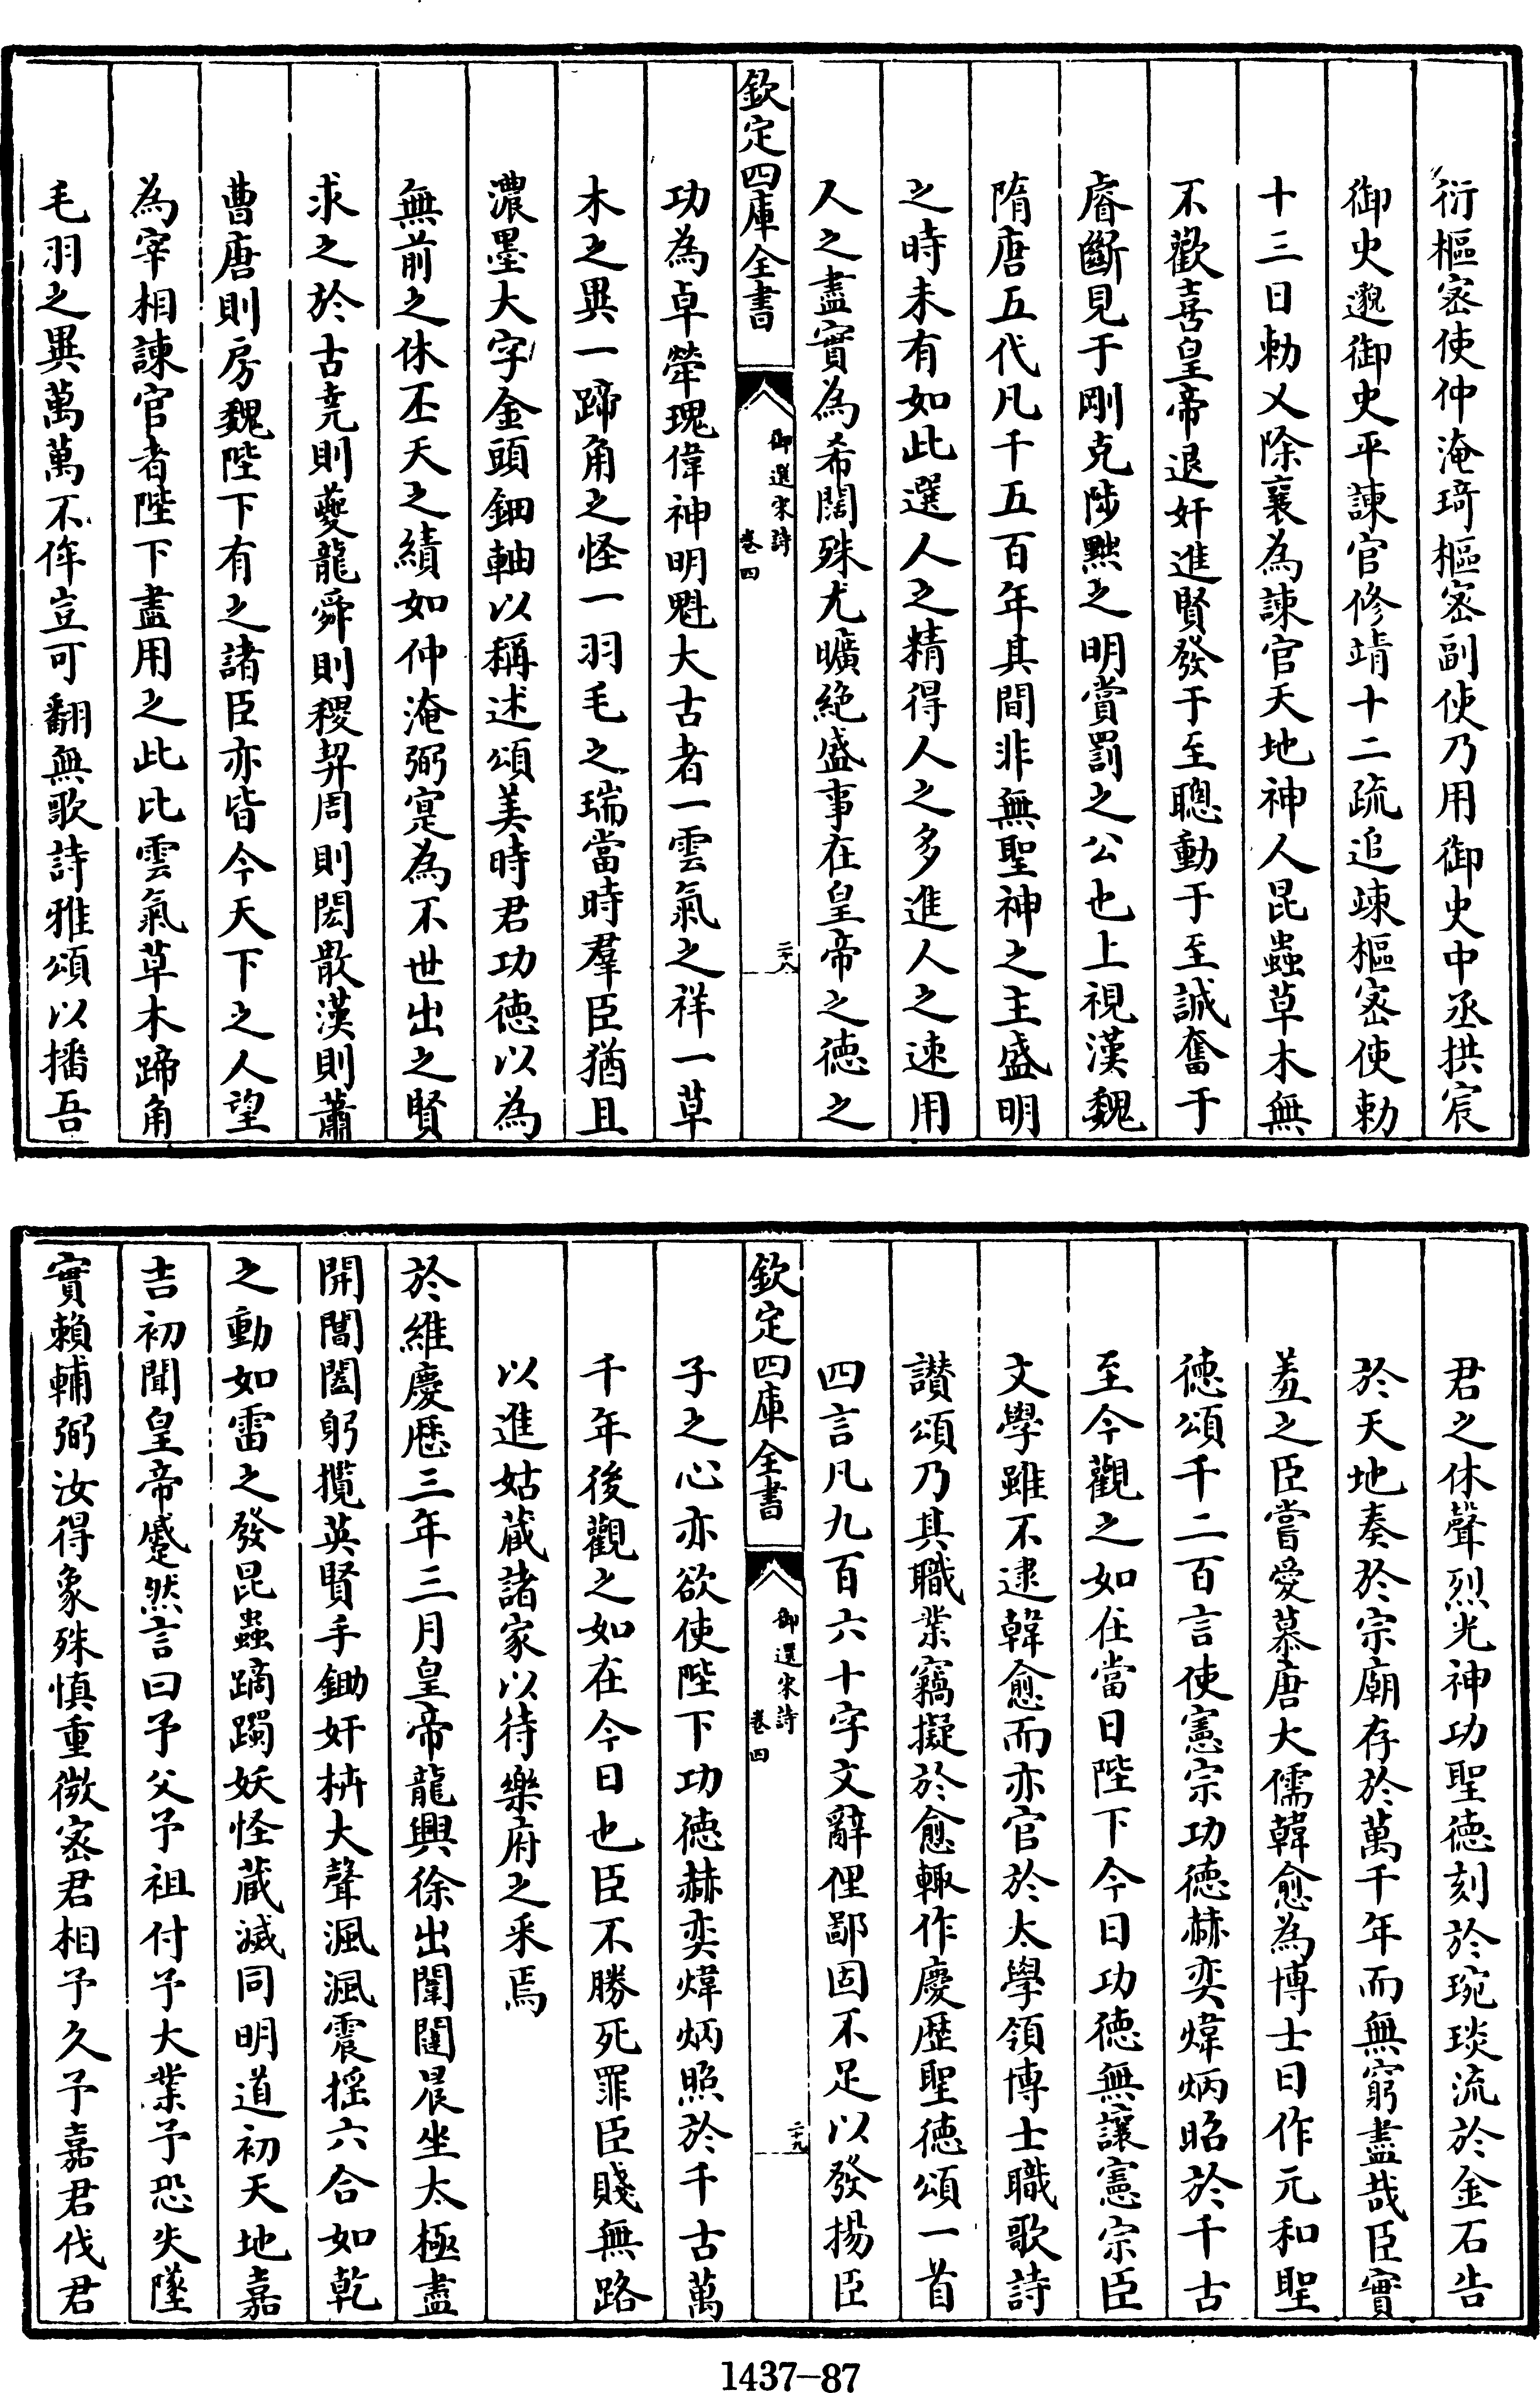 衍樞密使仲淹琦樞密副使乃用御史中丞拱宸
御史邈御史平諫官修靖十二疏追竦樞密使勅
十三日勅又除襄為諫官天地神人昆蟲草木無
不歡喜皇帝退奸進賢發于至聰動于至誠奮于
睿斷見于剛克陟黜之明賞罰之公也上視漢魏
隋唐五代凡千五百年其間非無聖神之主盛明
之時未有如此選人之精得人之多進人之速用
人之盡實為希闊殊尤曠絶盛事在皇帝之徳之
欽定四庫全書
御選宋詩
卷四
二十八
功為卓犖瑰偉神明魁大古者一雲氣之祥一草
木之異一蹄角之怪一羽毛之瑞當時羣臣猶且
濃墨大字金頭鈿軸以稱述頌美時君功徳以為
無前之休丕天之績如仲淹弼寔為不世出之賢
求之於古堯則夔龍舜則稷契周則閎散漢則蕭
曹唐則房魏陛下有之諸臣亦皆今天下之人望
為宰相諫官者陛下盡用之此比雲氣草木蹄角
毛羽之異萬萬不侔豈可翻無歌詩雅頌以播吾
君之休聲烈光神功聖徳刻於琬琰流於金石告
於天地奏於宗廟存於萬千年而無窮盡哉臣實
羞之臣嘗愛慕唐大儒韓愈為博士日作元和聖
徳頌千二百言使憲宗功徳赫奕煒炳昭於千古
至今觀之如在當日陛下今日功徳無讓憲宗臣
文學雖不逮韓愈而亦官於太學領博士職歌詩
讃頌乃其職業竊擬於愈輒作慶歴聖徳頌一首
四言凡九百六十字文辭俚鄙固不足以發揚臣
欽定四庫全書
御選宋詩
卷四
二十九
子之心亦欲使陛下功徳赫奕煒炳照於千古萬
千年後觀之如在今日也臣不勝死罪臣賤無路
以進姑蔵諸家以待樂府之采焉
於維慶歴三年三月皇帝龍興徐出闈闥晨坐太極盡
開閶闔躬攬英賢手鋤奸枿大聲渢渢震揺六合如乾
之動如雷之發昆蟲蹢躅妖怪蔵滅同明道初天地嘉
吉初聞皇帝蹙然言曰予父予祖付予大業予恐失墜
實賴輔弼汝得象殊慎重微宻君相予久予嘉君伐君
1437-87